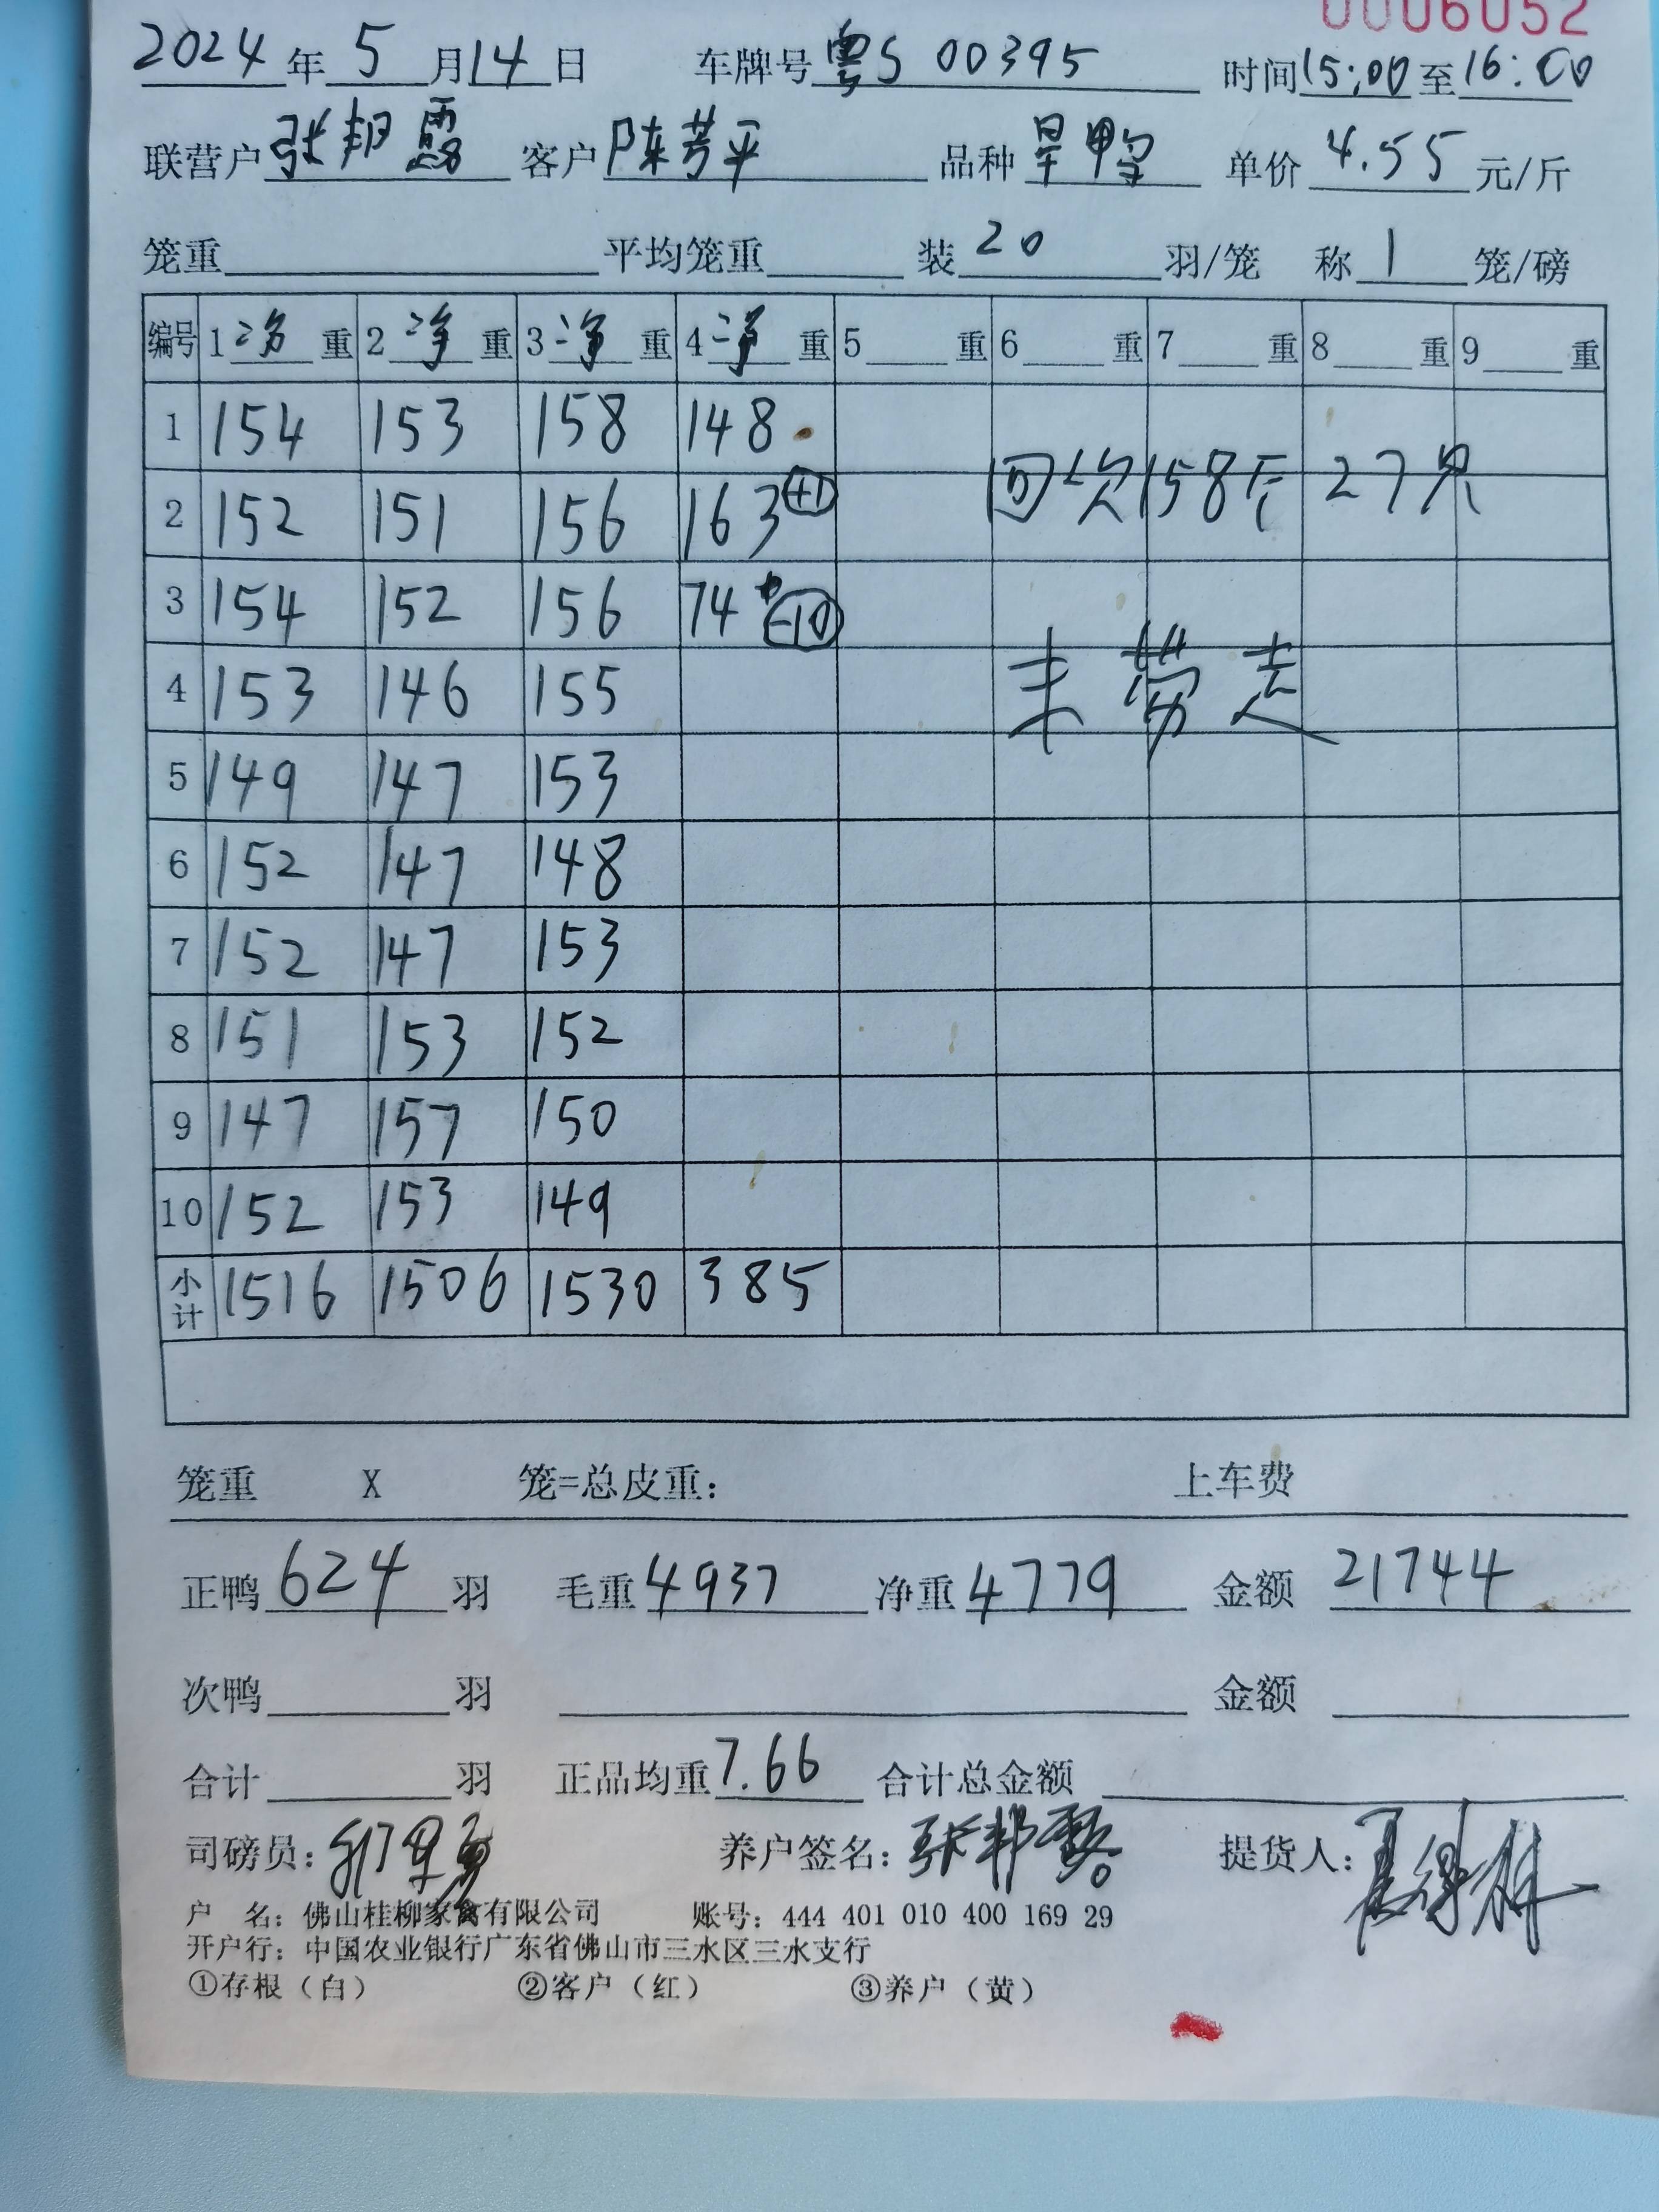 0006052
2024 年 5 月 14 日 车牌号 粤S 00395 时间 15:00 至 16:00
联营户 张邦露 客户 陈芳平 品种 旱鸭 单价 4.55 元/斤
笼重 平均笼重 装 20 羽/笼 称 1 笼/磅
编号 1 净 重 2 净 重 3 净 重 4 净 重 5 重 6 重 7 重 8 重 9 重
1 154 153 158 148
回次158斤 27只
2 152 151 156 163 +1
3 154 152 156 74 -10
4 153 146 155
未带走
5 149 147 153
6 152 147 148
7 152 147 153
8 151 153 152
9 147 157 150
10 152 153 149
小计 1516 1506 1530 385
笼重 X 笼=总皮重： 上车费
正鸭 624 羽 毛重 4937 净重 4779 金额 21744
次鸭 羽 金额
合计 羽 正品均重 7.66 合计总金额
司磅员： 养户签名：张邦露 提货人：
户 名：佛山桂柳家禽有限公司 账号：444 401 010 400 169 29
开户行：中国农业银行广东省佛山市三水区三水支行
①存根（白） ②客户（红） ③养户（黄）